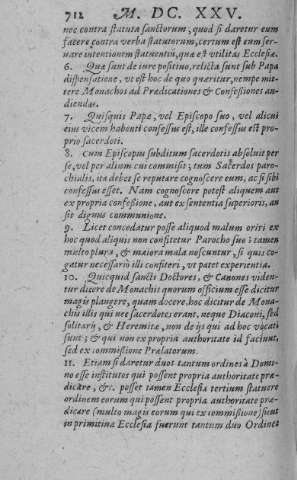 712 M. DC. XXV.
nec contra statuta sanctorum, quod si daretur eum
facere contra verba statutorum, certum est eum ser-
uare intentionem statuentiū, quæ est vtilitas Ecclesiæ.
6. Quæ sunt de iure positiuo, relicta sunt sub Papæ
dispensatione, vt est hoc de quo quæritur, nempe mit-
tere Monachos ad Predicationes & Confessiones au-
diendas.
7. Quisquis Papæ, vel Episcopo suo, vel alicui
eius vicem habenti confessus est, ille confessus est pro-
prio sacerdoti.
8. Cum Episcopus subditum sacerdotis absoluit per
se, vel per alium cui commisit; tum Sacerdos paro-
chialis, ita debet se reputare cognoscere eum, ac si sibi
confessus esset. Nam cognoscere potest aliquem aut
ex propria confessione, aut ex sententia superioris, an
sit dignus communione.
9. Licet concedatur posse aliquod malum oriri ex
hoc quod aliquis non confitetur Parocho suo: tamen
multo plura, & maiora mala nascuntur, si quis co-
gatur necessariò illi confiteri, vt patet experientia.
10. Quicquid sancti Doctores, & Canones viden-
tur dicere de Monachis quorum officium esse dicitur
magis plangere, quam docere. hoc dicitur de Mona-
chis illis qui nec sacerdotes erant, neque Diaconi, sed
solitarij, & Heremitæ, non de ijs qui ad hoc vocati
sunt; & qui non ex propria authoritate id faciunt,
sed ex commissione Prælatorum.
11. Etiam si daretur duos tantum ordines à Domi-
no esse institutos qui possent propria authoritate præ-
dicare, &c. posset tamen Ecclesia tertium statuere
ordinem eorum qui possent propria authoritate præ-
dicare (multo magis eorum qui ex commissione) sicut
in primitiua Ecclesia fuerunt tantum duo Ordines